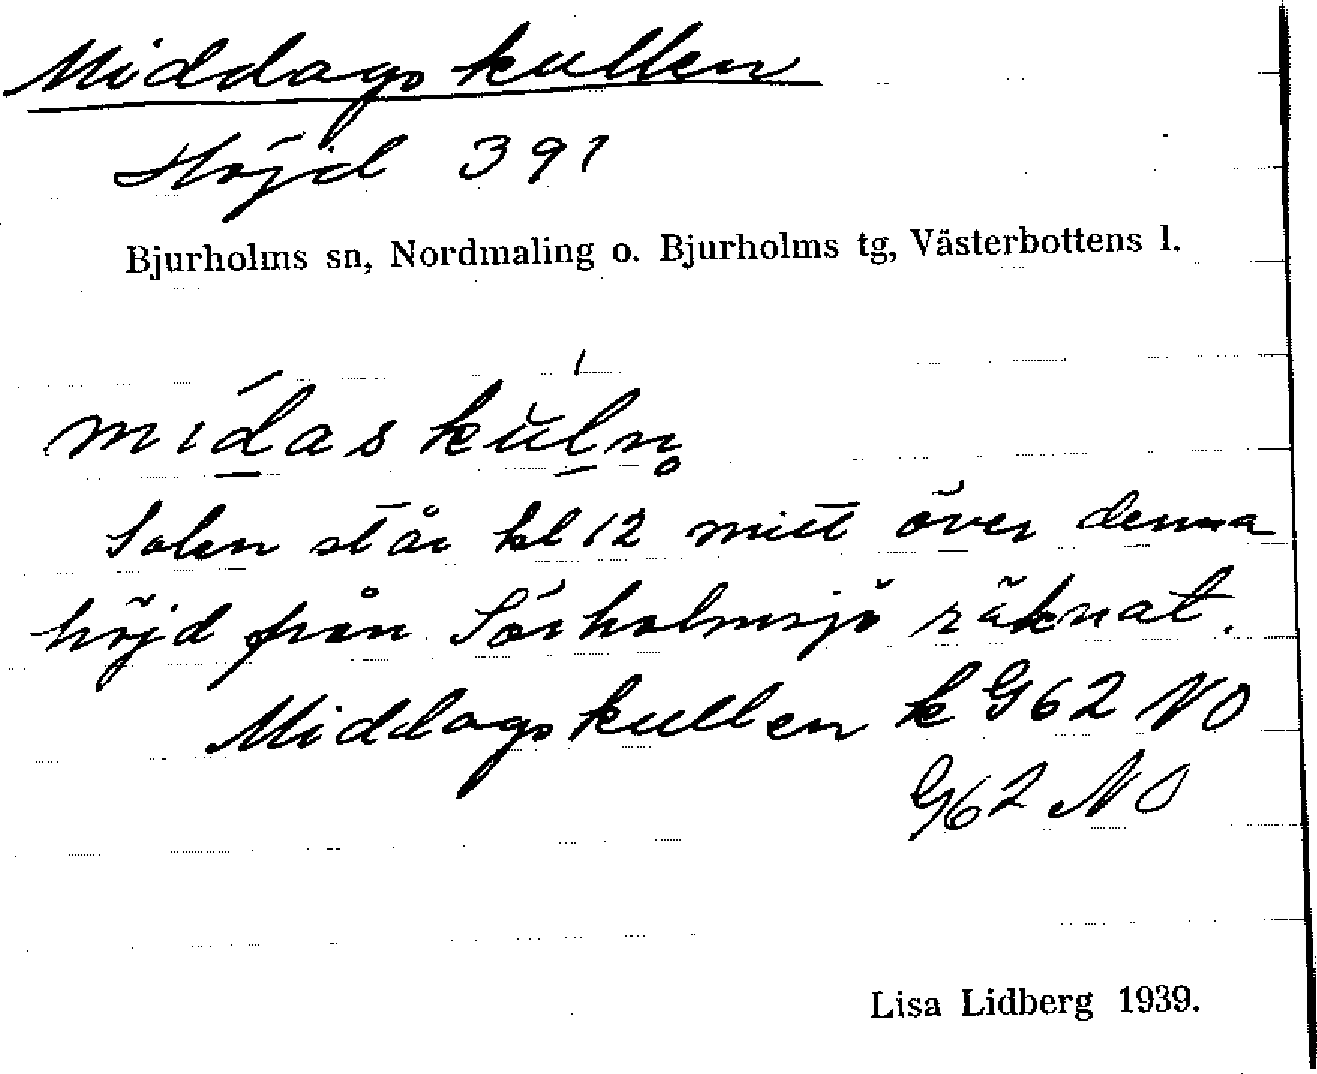 Middagskullen
Höjd 391
Bjurholms sn, Nordmaling o. Bjurholms tg, Västerbottens l.
mídaskŭ́ln̥
Solen står kl 12 mitt över denna
höjd från Sörholmsjö räknat.
Middagskullen k G62 NO
G62 NO
Lisa Lidberg 1939.